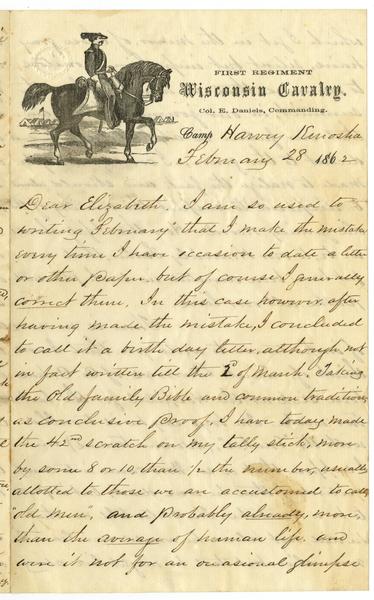 FIRST REGIMENT
Wisconsin Cavalry.
Col. E. Daniels, Commanding.
Camp Harvey Kenosha
February 28 1862
Dear Elizabeth, I am so used to
writing "February" that I make the mistake
every time I have occasion to date a letter
or other paper but of course I generally
correct them. In this case however after
having made the mistake, I concluded
to call it a birth day letter, although not
in fact written till the 1st of March. Taking
the Old family Bible and common traditions
as conclusive proof, I have today made
the 42nd scratch on my tally stick, more
by some 8 or 10, than 1/2 the number, usually
allotted to those we are accustomed to call
"old men", and probably already, more
than the average of human life. and
were it not for an occasional glimpse